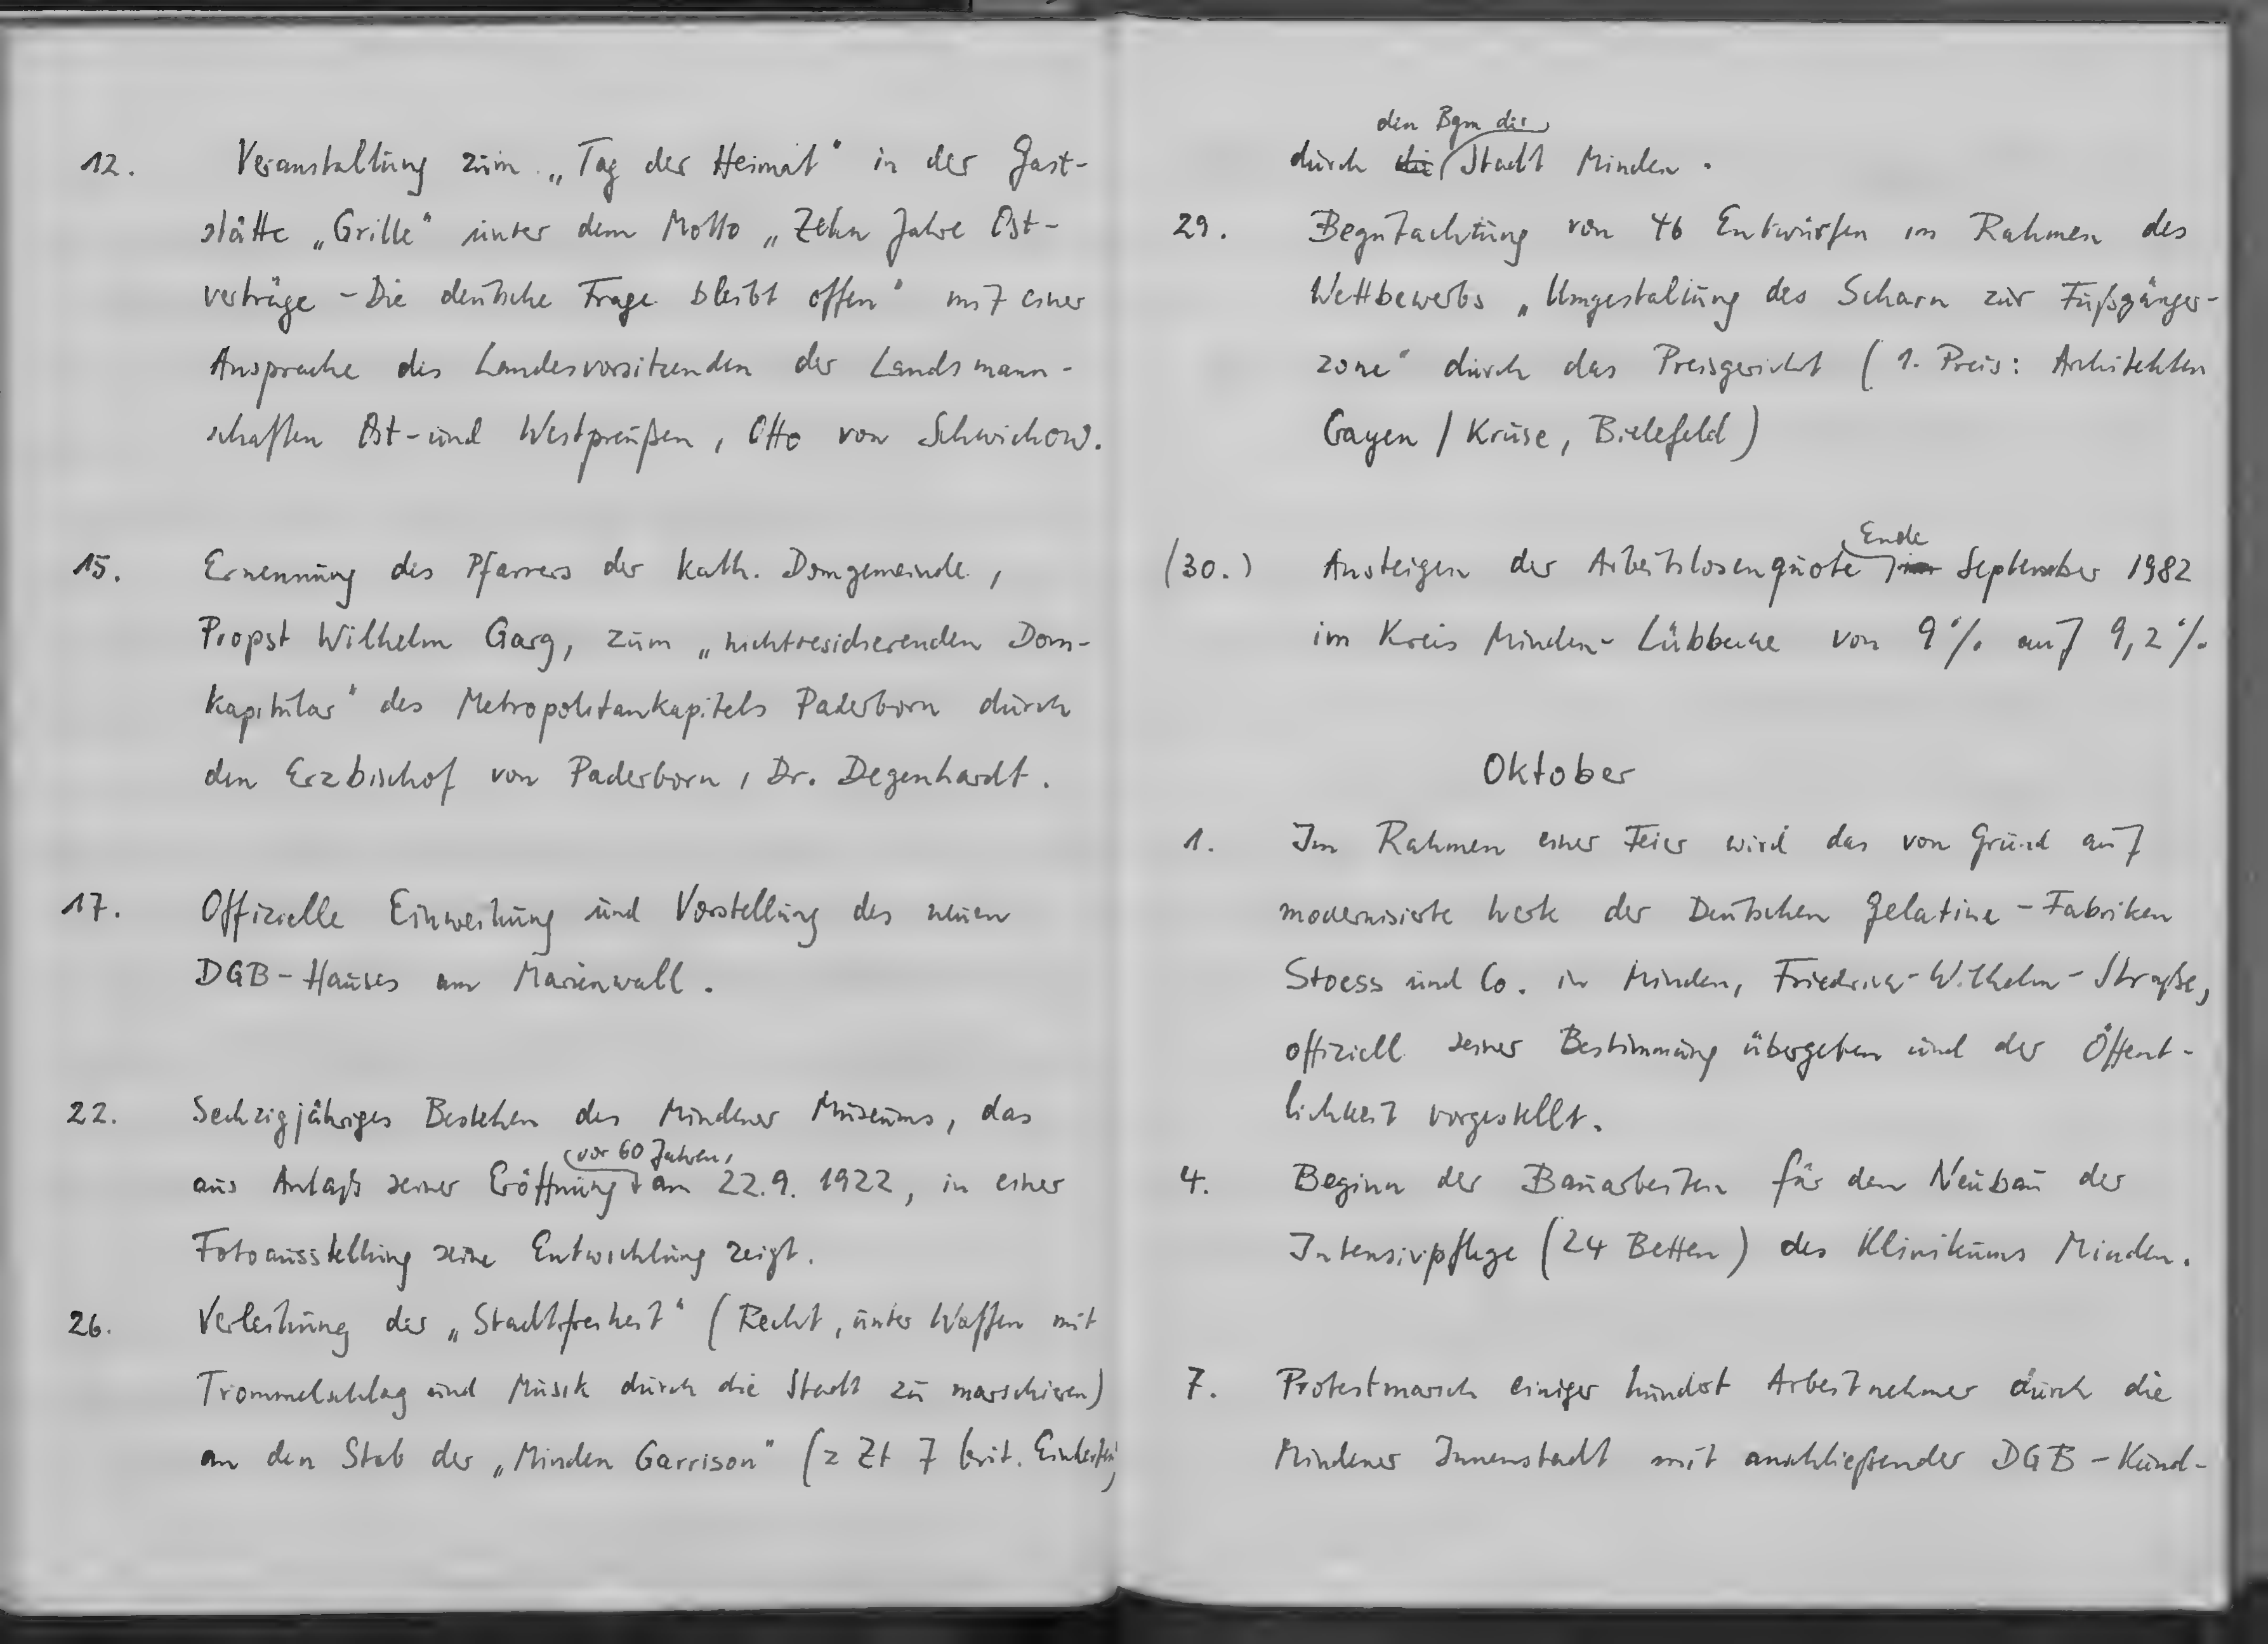 12. Veranstaltung zum „Tag der Heimat“ in der Gast-
stätte „Grille“ unter dem Motto „Zehn Jahre Ost-
verträge - Die deutsche Frage bleibt offen“ mit einer
Ansprache des Landesvorsitzenden der Landsmann-
schaften Ost- und Westpreußen, Otto von Schwichow.
15. Ernennung des Pfarrers der kath. Domgemeinde,
Propst Wilhelm Garg, zum „nichtresidierenden Dom-
kapitular“ des Metropolitankapitels Paderborn durch
den Erzbischof von Paderborn, Dr. Degenhardt.
17. Offizielle Einweihung und Vorstellung des neuen
DGB-Hauses am Marienwall.
22. Sechzigjähriges Bestehen des Mindener Museums, das
aus Anlaß seiner Eröffnung vor 60 Jahren, am 22.9. 1922, in einer
Fotoausstellung seine Entwicklung zeigt.
26. Verleihung der „Stadtfreiheit“ (Recht, unter Waffen mit
Trommelschlag und Musik durch die Stadt zu marschieren)
an den Stab der „Minden Garrison“ (z Zt 7 brit. Einheiten)
durch die den Bgm der Stadt Minden.
29. Begutachtung von 46 Entwürfen im Rahmen des
Wettbewerbs „Umgestaltung des Scharn zur Fußgänger-
zone“ durch das Preisgericht (1. Preis: Architekten
Gayen / Kruse, Bielefeld)
(30.) Ansteigen der Arbeitslosenquote im Ende September 1982
im Kreis Minden-Lübbecke von 9% auf 9,2%
Oktober
1. Im Rahmen einer Feier wird das von Grund auf
modernisierte Werk der Deutschen Gelatine-Fabriken
Stoess und Co. in Minden, Friedrich-Wilhelm-Straße,
offiziell seiner Bestimmung übergeben und der Öffent-
lichkeit vorgestellt.
4. Beginn der Bauarbeiten für den Neubau der
Intensivpflege (24 Betten) des Klinikums Minden.
7. Protestmarsch einiger hundert Arbeitnehmer durch die
Mindener Innenstadt mit anschließender DGB-Kund-